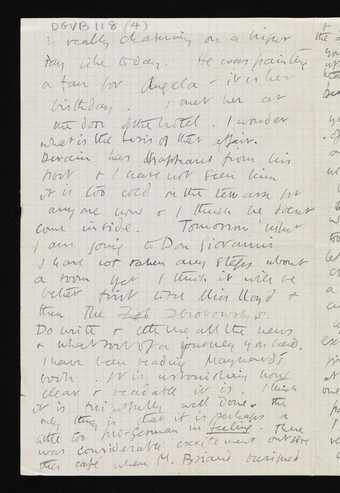 DGVB 118 (4)
is really charming on a bright
day like today. He was painting
a fan for Angela - it is her
birthday. I met her at
the door of the hotel. I wonder
what is the basis of their affair.
Derain has disappeared from his
post & I have not seen him
it is too cold on the terrasse for
anyone now & I think he doesnt
come inside. Tomorrow night
I am going to Don Giovanni
I have not taken any steps about
a room yet I think it will be
better first to see Miss Lloyd &
then the Zborowskis.
Do write & tell me all the news
& what sort of a journey you had.
I have been reading Maynard's
book. It is astonishing how
clear & readable it is, I think
it is truthfully well done. The
only thing is that it is perhaps a
little too pro-German in feeling. There
was considerable excitement outside
this café when M. Briand resigned